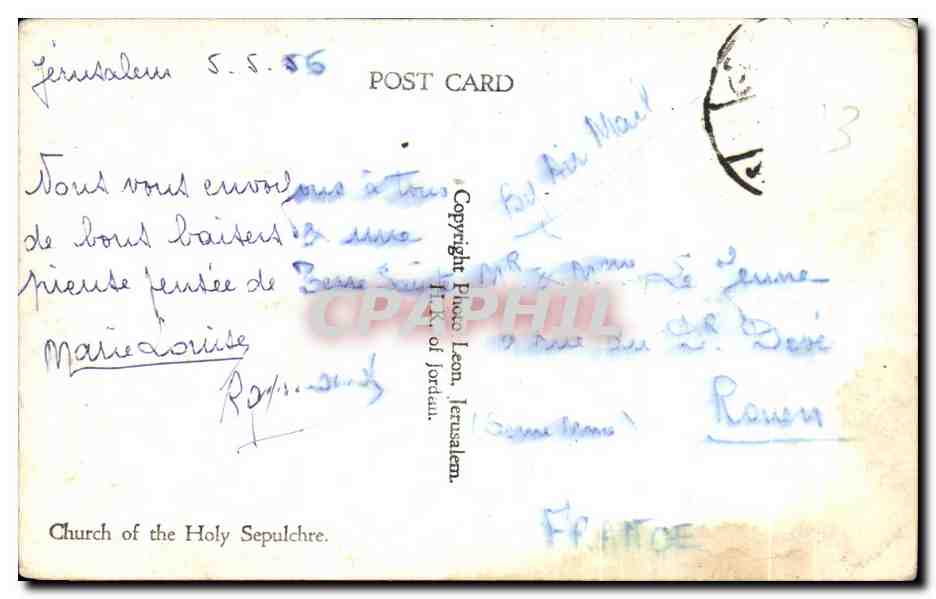 Jérusalem 5.5.56
POST CARD
Nous vous envoyons à tous
de bons baisers & une
pieuse pensée de Terre Sainte
Marie Louise
Raymond
Copyright Photo Leon, Jerusalem.
H.K. of Jordan.
Air Mail
Mr & Mme Le Jeune
rue du Dr
Rouen
FRANCE
3
Church of the Holy Sepulchre.
CPAPHIL